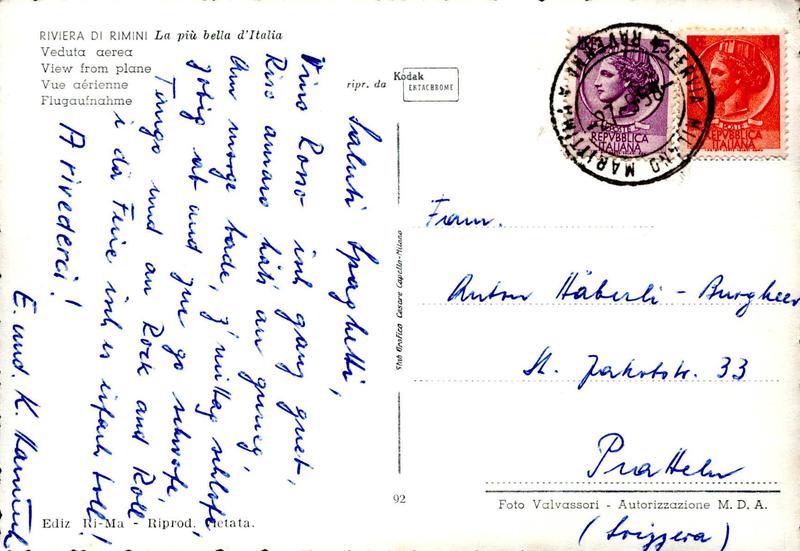 RIVIERA DI RIMINI La più bella d'Italia
Veduta aerea
View from plane
Vue aérienne
Flugaufnahme
ripr. da Kodak
EKTACHROME
Saluti Spaghetti,
Vino Rosso isch ganz guet,
Riso amaro häts au gnueg,
Am morge bade, z'mittag schlofe,
zobig ab und zue go schwofe,
Tango und au Rock and Roll
i dä Ferie isch es eifach toll!
Arivederci!
E. und K.
Stab Grafico Cesare Capello-Milano
POSTE
REPVBBLICA
ITALIANA
POSTE
REPVBBLICA
ITALIANA
MILANO MARITTIMA
RAVENNA
Fam.
Anton Häberli-Burgheer
St. Jakobstr. 33
Pratteln
(Svizzera)
92
Foto Valvassori - Autorizzazione M. D. A.
Ediz Ri-Ma - Riprod. vietata.